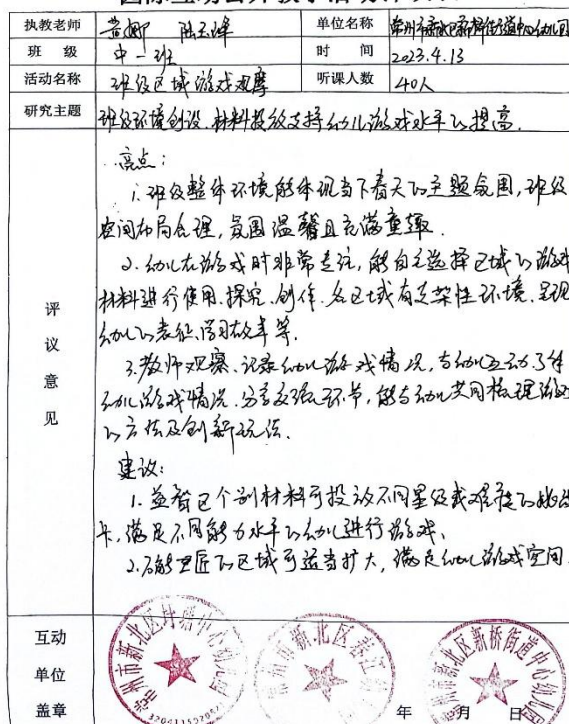 执教老师 黄娜 陆玉萍 单位名称 常州市新北区新桥街道中心幼儿园
班 级 中一班 时 间 2023.4.13
活动名称 班级区域游戏观摩 听课人数 40人
研究主题 班级环境创设、材料投放支持幼儿游戏水平的提高.
评议意见
亮点:
1. 班级整体环境能体现当下春天的主题氛围,班级
空间布局合理,氛围温馨且充满童趣.
2. 幼儿在游戏时非常专注,能自主选择区域的游戏
材料进行使用、探究、创作.各区域有支架性环境、呈现
幼儿的表征、学习故事等.
3. 教师观察、记录幼儿游戏情况,与幼儿互动了解
幼儿游戏情况.分享交流环节,能与幼儿共同梳理游戏
的方法及创新玩法.
建议:
1. 益智区个别材料可投放不同星级或难度的挑战
卡,满足不同能力水平的幼儿进行游戏.
2. 能工巧匠的区域可适当扩大,满足幼儿游戏空间.
互动
单位
盖章
常州市新北区 中心幼儿园
常州市新北区
新北区新桥街道中心幼儿园
年 月 日